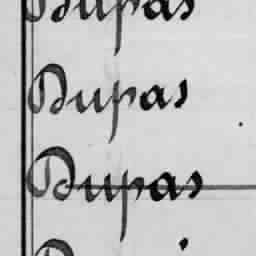 Dupas
Dupas
Dupas